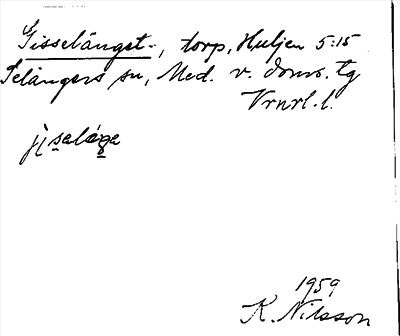 Gisselånget-, torp, Huljen 5:15
Selångers sn, Med. v. doms. tg
Vrnrl. l.
jìselåŋe
1959
K. Nilsson